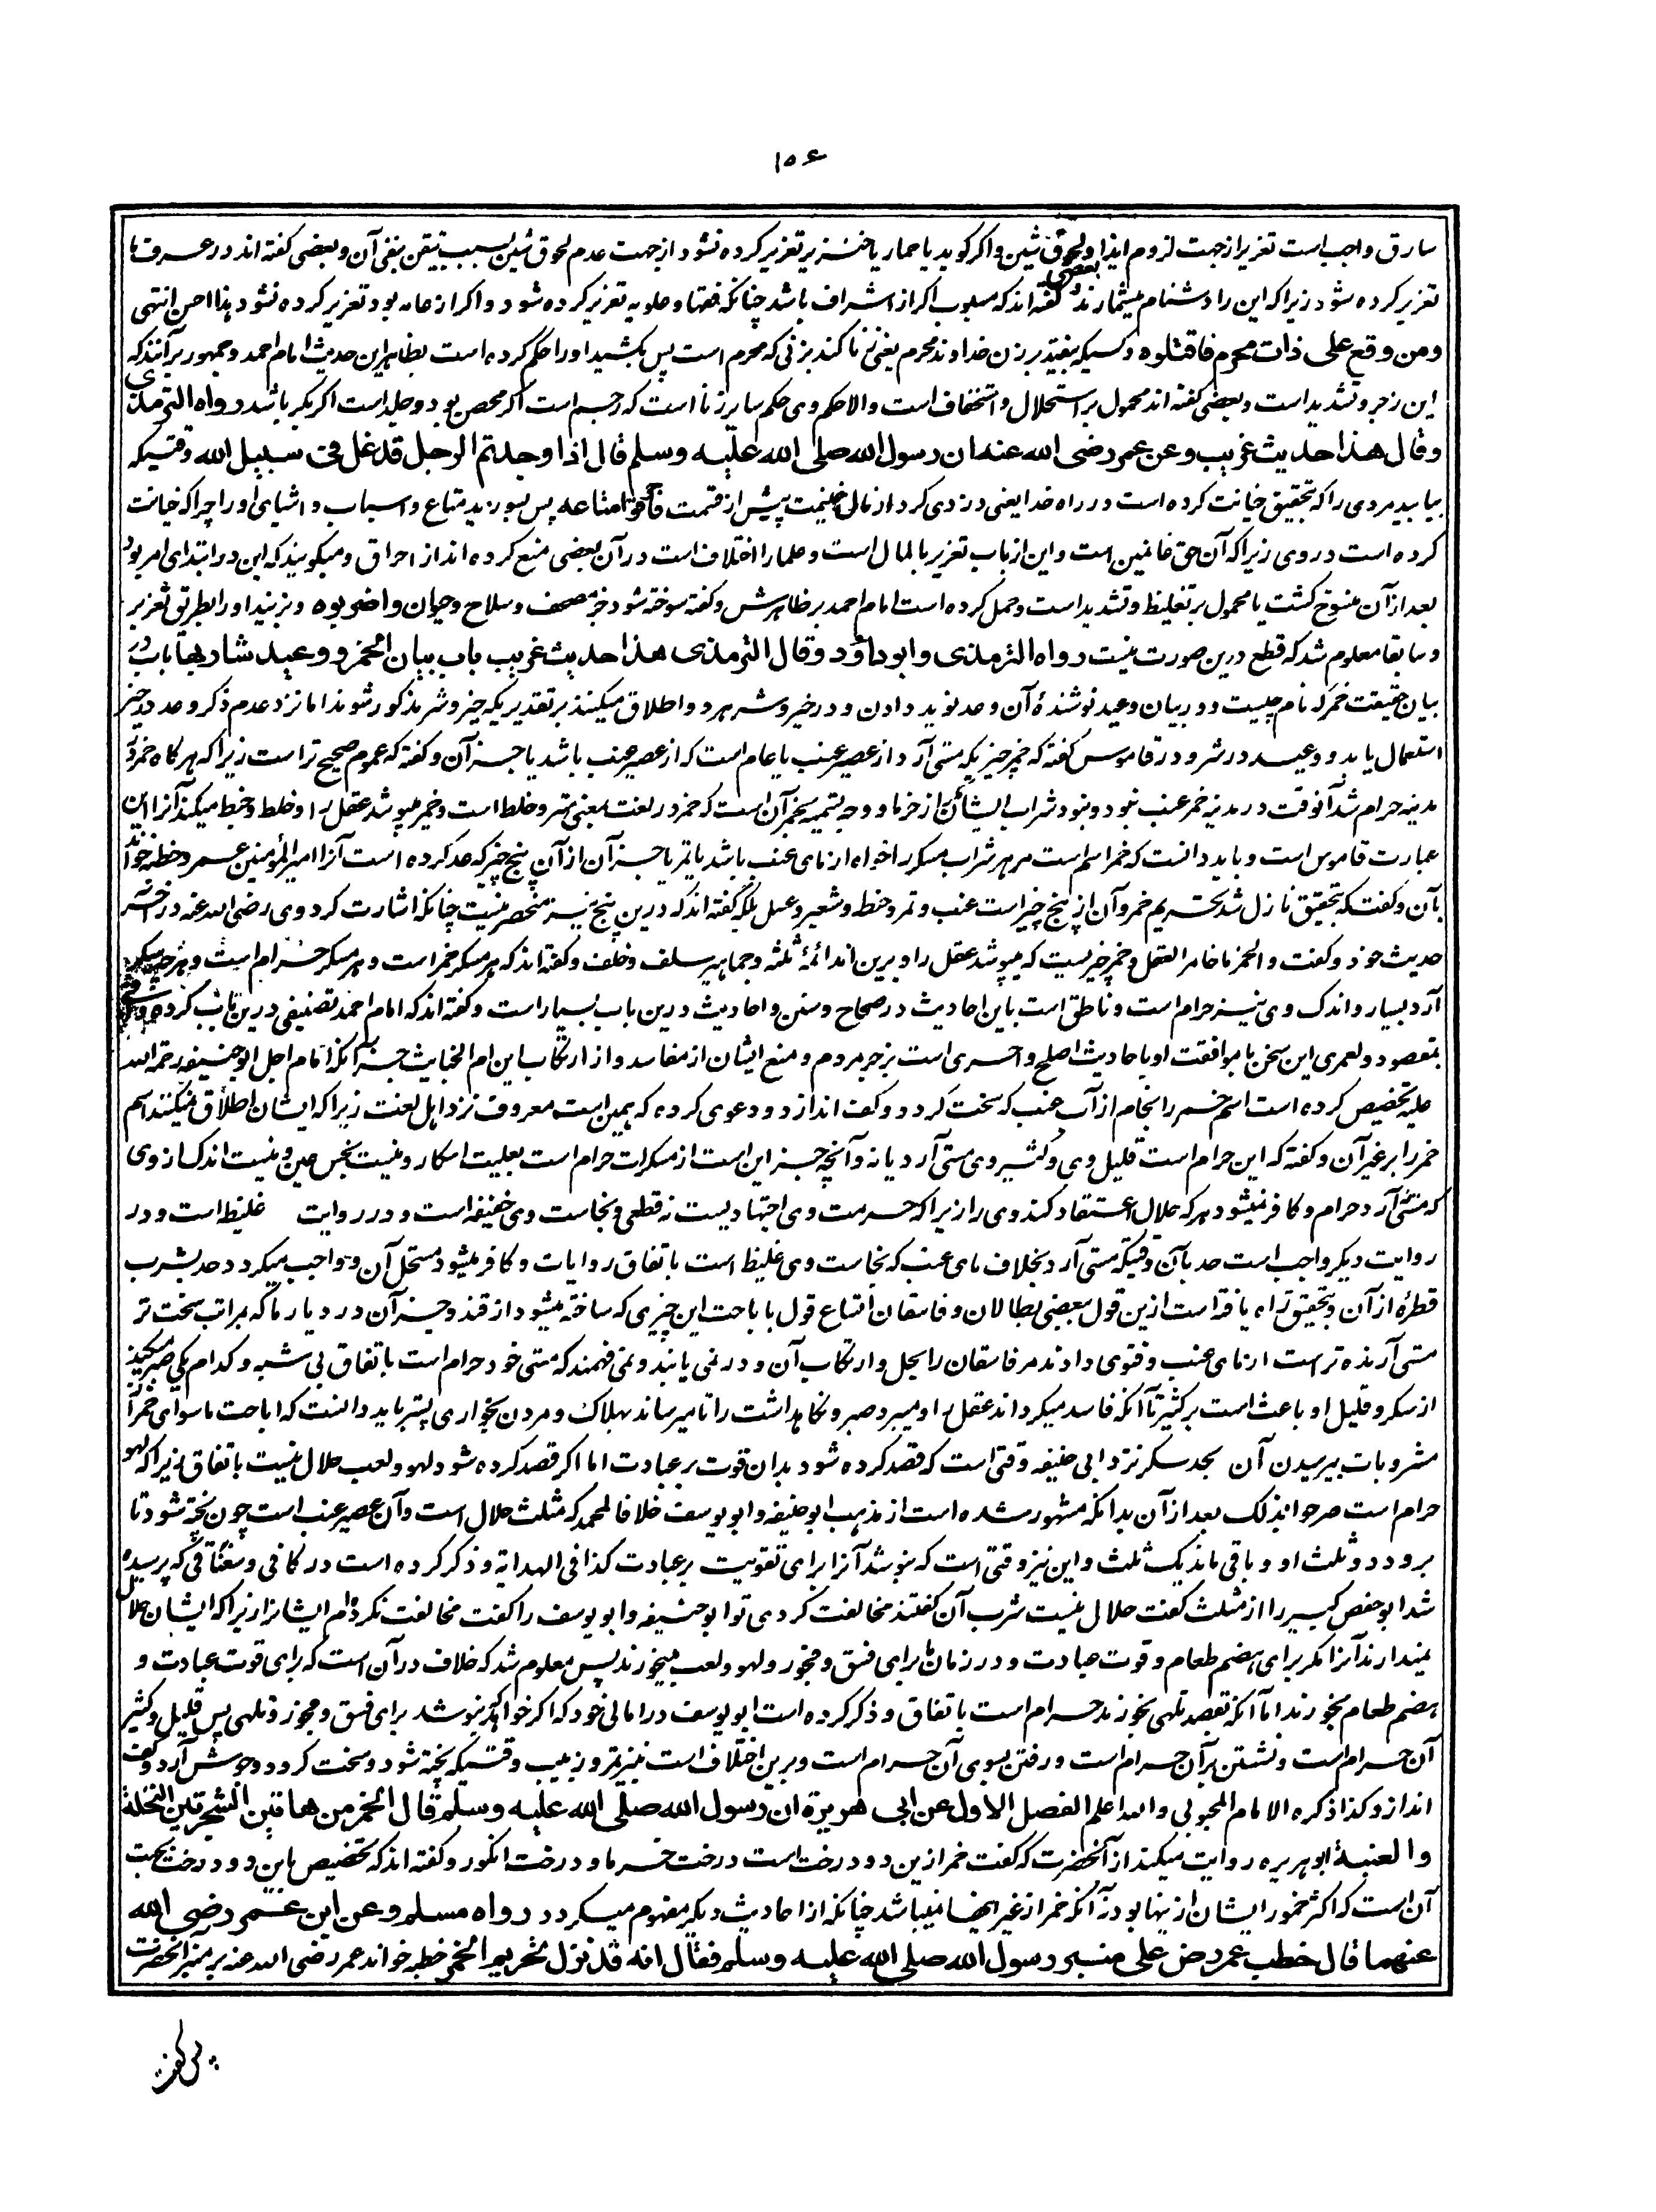 ۱۵۶
سارق واجب است تعزیر از جهت لزوم ایذا و لحوق شین و اکر کوید یا حمار یا خنزیر تعزیر کرده نشود از جهت عدم لحوق شین بسبب تیقن بنفی آن و بعضی کفته اند در عرف ما
تعزیر کرده شود زیرا که این را دشنام میشمارند و بعضی کفته اند که مسبوب اکر از اشراف باشد چنانکه فقها و علویه تعزیر کرده شود و اکر از عامه بود تعزیر کرده نشود هذا احسن انتهی
ومن وقع علی ذات محرم فاقتلوه و کسیکه بیفتد بر زن خداوند محرم یعنی زنا کند بزنی که محرم است پس بکشید او را حکم کرده است بظاهر این حدیث امام احمد و جمهور برآنند که
این زجر و تشدید است و بعضی کفته اند محمول بر استحلال و استخفاف است و الا حکم وی حکم سایر زنا است که رجم است اکر محصن بود و جلد است اکر بکر باشد رواه الترمذی
وقال هذا حدیث غریب وعن عمر رضی الله عنه ان رسول الله صلی الله علیه وسلم قال اذا وجدتم الرجل قد غل فی سبیل الله وقتیکه
بیابید مردی را که بتحقیق خیانت کرده است در راه خدا یعنی دزدی کرد از مال غنیمت پیش از قسمت فاحرقوا متاعه پس بسوزید متاع و اسباب و اشیای او را چرا که خیانت
کرده است در وی زیرا که آن حق غانمین است و این از باب تعزیر بالمال است و علما را اختلاف است در آن بعضی منع کرده اند از احراق و میکویند که این در ابتدای امر بود
بعد از آن منسوخ کشت یا محمول بر تغلیظ و تشدید است و حمل کرده است امام احمد بر ظاهرش و کفته سوخته شود جز مصحف و سلاح و حیوان واضربوه و بزنید او را بطریق تعزیر
و سابقا معلوم شد که قطع درین صورت نیست رواه الترمذی وابو داؤد وقال الترمذی هذا حدیث غریب باب بیان الخمر و وعید شاربها باب در
بیان حقیقت خمر که نام چیست و در بیان وعید نوشندۀ آن و وعد نوید دادن و در خیر و شر هر دو اطلاق میکنند بر تقدیریکه خیر و شر مذکور شوند اما نزد عدم ذکر وعد در خیر
استعمال یابد و وعید در شر و در قاموس کفته که خمر چیزیکه مستی آرد از عصیر عنب یا عام است که از عصیر عنب باشد یا جز آن و کفته که عموم صحیح تر است زیرا که هر کاه خمر در
مدینه حرام شد آنوقت در مدینه خمر عنب نبود و نبود شراب ایشان مکر از خرما و وجه تسمیه بخمر آن است که خمر در لغت بمعنی ستر و خلط است و خمر میپوشد عقل را و خلط و خبط میکند آنرا این
عبارت قاموس است و باید دانست که خمر اسم است مر هر شراب مسکر را خواه از مای عنب باشد یا تمر یا جز آن از آن پنج چیز که عد کرده است آنرا امیر المؤمنین عمر و خطبه خواند
بآن و کفت که بتحقیق نازل شد تحریم خمر و آن از پنج چیز است عنب و تمر و حنطه و شعیر و عسل بلکه کفته اند که درین پنج نیز منحصر نیست چنانکه اشارت کرد وی رضی الله عنه در آخر
حدیث خود و کفت و الخمر ما خامر العقل و خمر چیزیست که میپوشد عقل را و برین اند ائمۀ ثلثه و جماهیر سلف و خلف و کفته اند که هر مسکر خمر است و هر مسکر حرام است و هرچه سکر
آرد بسیار و اندک وی نیز حرام است و ناطق است باین احادیث در صحاح و سنن و احادیث درین باب بسیار است و کفته اند که امام احمد تصنیفی درین باب کرده
بمقصود و لعمری این سخن با موافقت او باحادیث اصلح و احری است بزجر مردم و منع ایشان از مفاسد و از ارتکاب این ام الخبایث جز آنکه امام اجل ابو حنیفه رحمه الله
علیه تخصیص کرده است اسم خمر را بخام از آب عنب که سخت کردد و کف اندازد و دعوی کرده که همین است معروف نزد اهل لغت زیرا که ایشان اطلاق نمیکنند اسم
خمر را بر غیر آن و کفته که این حرام است قلیل وی و کثیر وی مستی آرد یا نه و آنچه جز این است از مسکرات حرام است بعلیت اسکار و نیست نجس عین و نیست اندک از وی
که مستی آرد حرام و کافر نمیشود هر که حلال اعتقاد کند وی را زیرا که حرمت وی اجتهادیست نه قطعی و نجاست وی خفیفه است و در روایت غلیظ است و در
روایت دیکر واجب است حد بآن وقتیکه مستی آرد بخلاف مای عنب که نجاست وی غلیظ است باتفاق روایات و کافر میشود مستحل آن و واجب میکردد حد بشرب
قطرۀ از آن و بتحقیق راه یافته است ازین قول بعضی بطالان و فاسقان اتباع قول باباحت این چیزی که ساخته میشود از قند و جز آن در دیار ما که بمراتب سخت تر
مستی آرنده تر است از مای عنب و فتوی دادند مر فاسقان را بحل و ارتکاب آن و در نمی یابند و نمی فهمند که مستی خود حرام است باتفاق بی شبه و کدام یکی صبر میکند
از سکر و قلیل او باعث است بر کثیر تا آنکه فاسد میکرداند عقل را و میبرد صبر و نکاهداشت را تا میرساند بهلاک و مردن بخواری پستر باید دانست که اباحت ماسوای خمر از
مشروبات بیرسیدن آن بحد سکر نزد ابی حنیفه وقتی است که قصد کرده شود بدان قوت بر عبادت اما اکر قصد کرده شود لهو و لعب حلال نیست باتفاق زیرا که لهو
حرام است صرحوا بذلک بعد از آن بدانکه مشهور شده است از مذهب ابو حنیفه و ابو یوسف خلافا لمحمد که مثلث حلال است و آن عصیر عنب است چون پخته شود تا
برود دو ثلث او و باقی ماند یک ثلث و این نیز وقتی است که بنوشد آنرا برای تقویت بر عبادت کذا فی الهدایة و ذکر کرده است در کافی و که پرسیده
شد ابو حفص کبیر را از مثلث کفت حلال نیست شرب آن کفتند مخالفت کردی تو ابو حنیفه و ابو یوسف را کفت مخالفت نکرده ام ایشانرا زیرا که ایشان حلال
نمیدارند آنرا مکر برای هضم طعام و قوت عبادت و در زمان ما برای فسق و فجور و لهو و لعب میخورند پس معلوم شد که خلاف در آن است که برای قوت عبادت و
هضم طعام بخورند اما آنکه بقصد تلهی بخورند حرام است باتفاق و ذکر کرده است ابو یوسف در امالی خود که اکر خواهد بنوشد برای فسق و فجور و تلهی پس قلیل و کثیر
آن حرام است و نشستن بر آن حرام است و رفتن بسوی آن حرام است و برین اختلاف است نبیذ تمر و زبیب وقتیکه پخته شود و سخت کردد و جوش آرد و کف
اندازد کذا ذکره الامام المحبوبی والله اعلم الفصل الاول عن ابی هریرة ان رسول الله صلی الله علیه وسلم قال الخمر من هاتین الشجرتین النخلة
والعنبة ابو هریره روایت میکند از آنحضرت که کفت خمر ازین دو درخت است درخت خرما و درخت انکور و کفته اند که تخصیص باین دو درخت بجهت
آن است که اکثر خمور ایشان ازینها بود نه آنکه خمر از غیر اینها نمیباشد چنانکه از احادیث دیکر مفهوم میکردد رواه مسلم وعن ابن عمر رضی الله
عنهما قال خطب عمر رض علی منبر رسول الله صلی الله علیه وسلم فقال انه قد نزل تحریم الخمر خطبه خواند عمر رضی الله عنه بر منبر آنحضرت
پس کفت